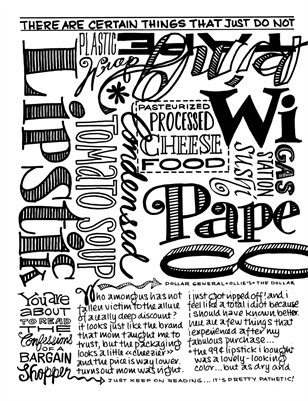 THERE ARE CERTAIN THINGS THAT JUST DO NOT
PLASTIC
Wrap
LiPSticK
TOMATO SOUP
*Condensed
PASTEURIZED
PROCESSED
CHEESE
FOOD
Wi
GAS
STATION
SUSHI
Pape
DOLLAR GENERAL • OLLIE'S • THE DOLLAR
You are
ABOUT
TO READ
THE
Confessions
OF A
BARGAIN
Shopper
Who among us has not
fallen victim to the allure
of a really deep discount?
it looks just like the brand
that mom taught me to
trust, but the packaging
looks a little <<cheezier>>
and the price is way lower.
turns out mom was right.
i just got ripped off! and i
feel like a total idiot because
i should have known better.
here are a few things that
i experienced after my
fabulous purchase...
• the 99¢ lipstick i bought
was a lovely-looking
color... but as dry and
JUST KEEP ON READING... IT'S PRETTY PATHETIC!